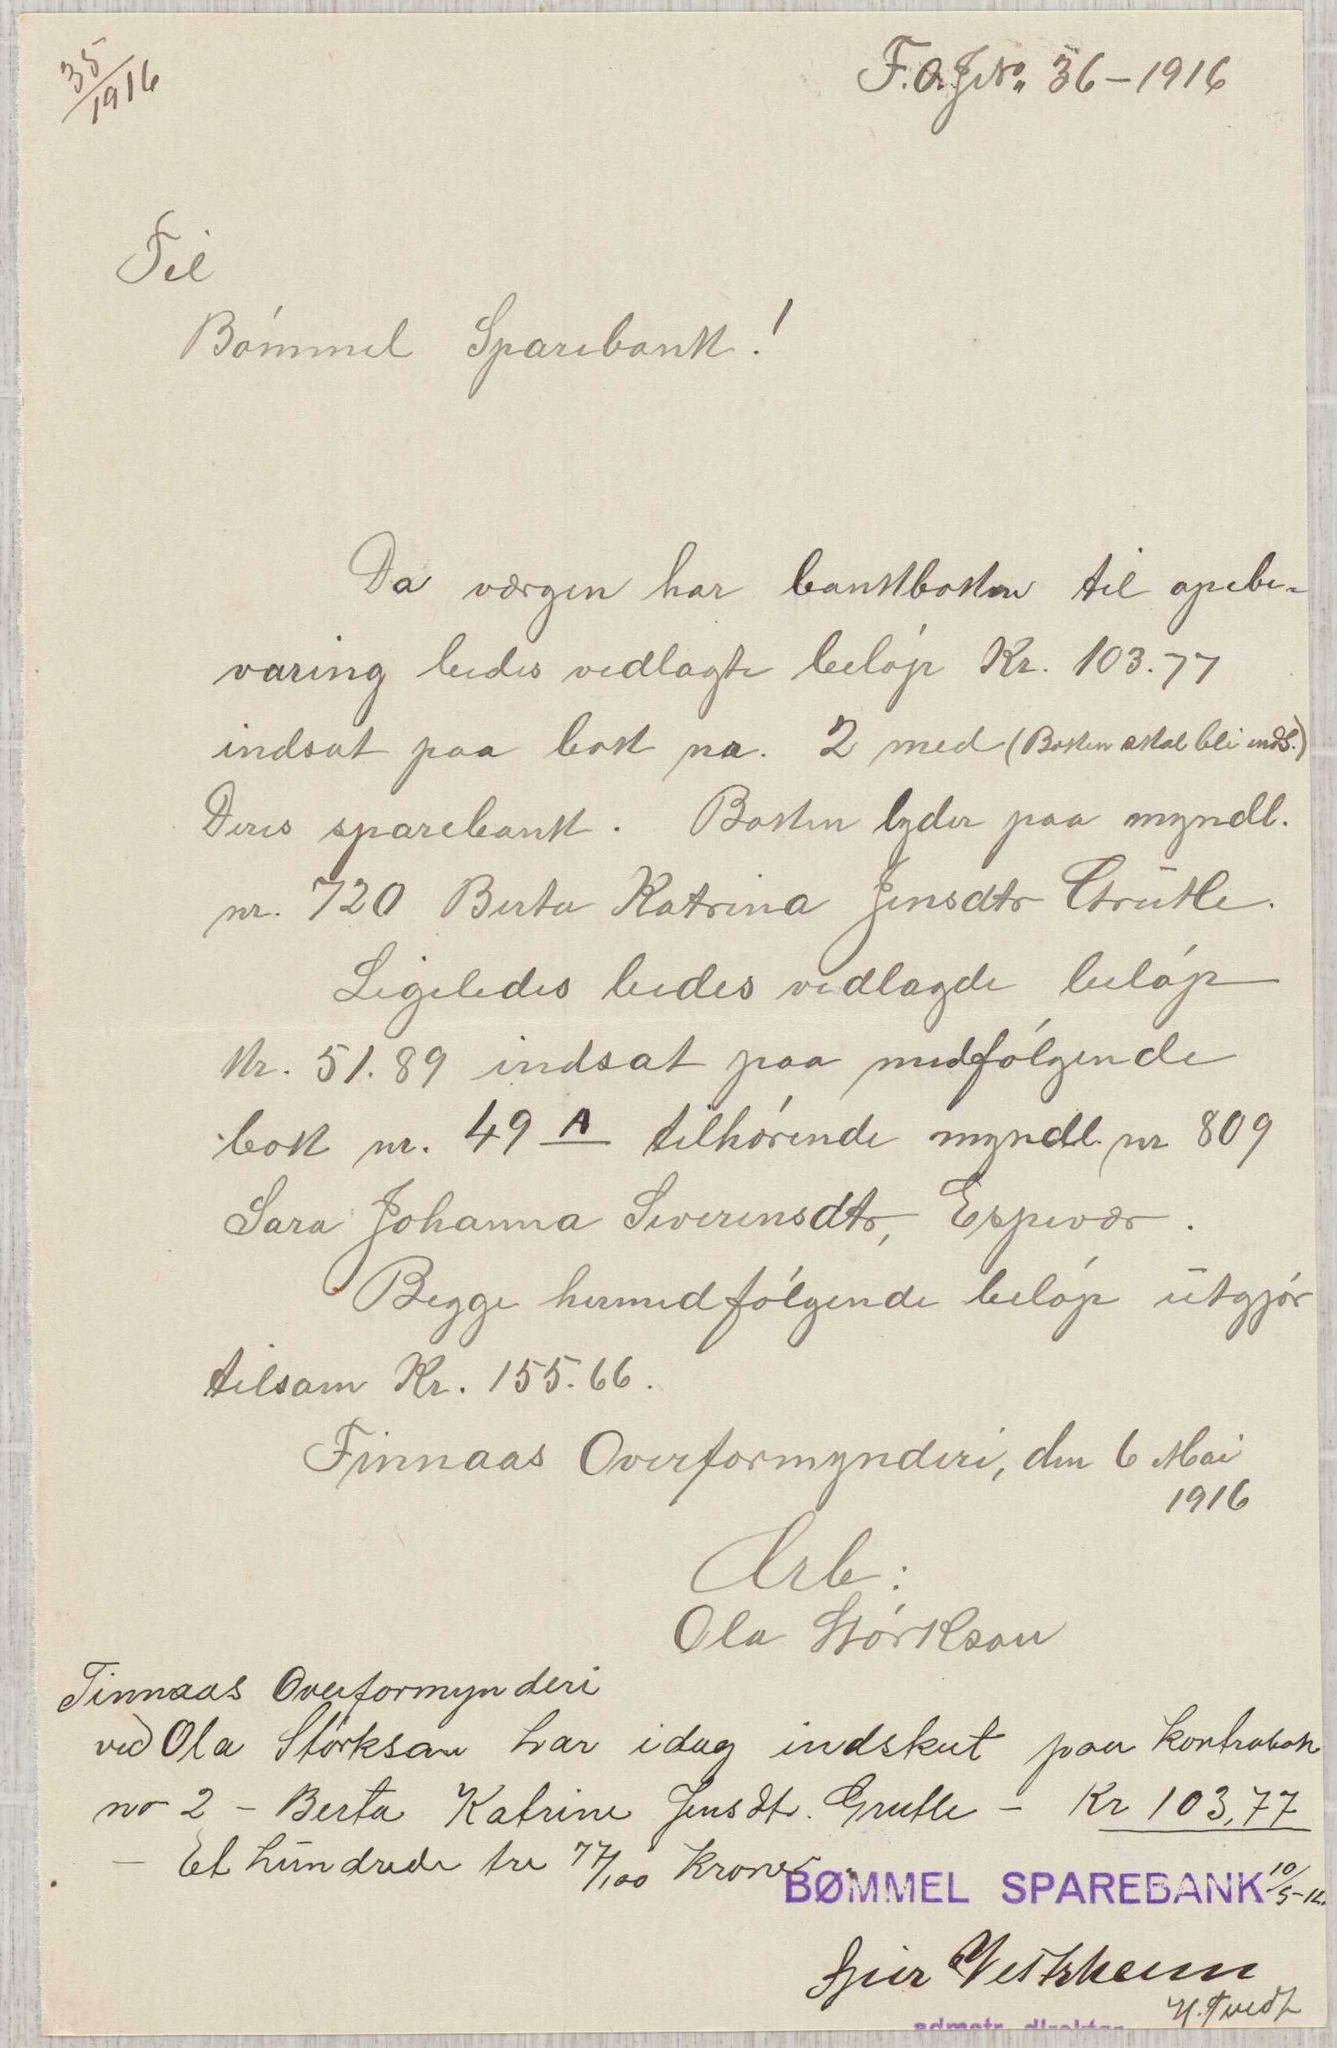 35/1916
F.O.J.No. 36-1916
Til
Bømmel Sparebank!
Da værgen har bankboken til opebe-
varing bedes vedlagte beløp Kr. 103.77
indsat paa bok nr. 2 med (Boken skal bli inds.)
Deres sparebank. Boken lyder paa myndl.
nr. 720 Berta Katrina Jensdtr Grutle.
Ligeledes bedes vedlagde beløp
Kr. 51.89 indsat paa medfølgende
bok nr. 49 A tilhørende myndl. nr 809
Sara Johanna Siverinsdtr, Espevær.
Begge hermedfølgende beløp utgjør
tilsam Kr. 155.66.
Finnaas Overformynderi, den 6 Mai
1916
Arb:
Ola Størkson
Finnaas Overformynderi
ved Ola Størkson har idag indskut paa kontrabok
no 2 - Berta Katrine Jensdtr. Grutle - Kr 103,77
- Et hundrede tre 77/100 Kroner.
BØMMEL SPAREBANK 10/5-16.
Vestrheim
H. Tvedt
admstr. direktør